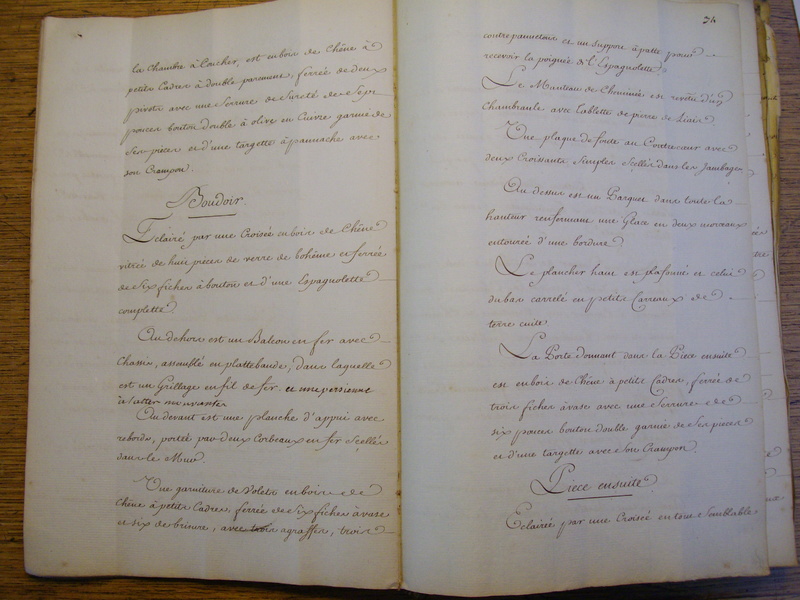 la Chambre à Coucher, est en bois de Chêne à
petits Cadres à double parement, ferrée de deux
pivots avec une Serrure de Sureté de Sept
pouces bouton double à olive en Cuivre garnie de
Ses pièces et d'une targette à pannache avec
son Crampon.
Boudoir.
Eclairé par une Croisée en bois de Chêne
vitrée de huit pièces de verre de bohême en ferrée
de Six fiches à bouton et d'une Espagnolette
complette.
Au dehors est un Balcon en fer avec
Chassis, assemblé en plattebande, dans laquelle
est un Grillage en fil de fer. et une persienne
à lattes mouvantes
Au devant est une planche d'appui avec
rebords, portée par deux Corbeaux en fer Scellés
dans le Mur
Une garniture de Volets en bois de
Chêne à petits Cadres, ferrée de Six fiches à vase
et six de brisure, avec trois agraffes, trois
74
contrepannetons et un support à patte pour
recevoir la poignée de l'Espagnolette.
Le Manteau de Cheminée est revêtu d'un
Chambranle avec Tablette de pierre de Liais
Une plaque de fonte au Contrecœur avec
deux Croissants Simples Scellés dans les Jambages
Au dessus est un Parquet dans toute la
hauteur renfermant une Glace en deux morceaux
entourée d'une bordure
Le plancher haut est plafonné et celui
du bas carrelé en petits Carreaux de
terre cuite
La Porte donnant dans la Piece ensuite
est en bois de Chêne à petits Cadres, ferrée de
trois fiches à vase avec une Serrure de
six pouces bouton double garnie de Ses pieces
et d'une targette avec Son Crampon
Piece ensuite
Eclairée par une Croisée en tout Semblable